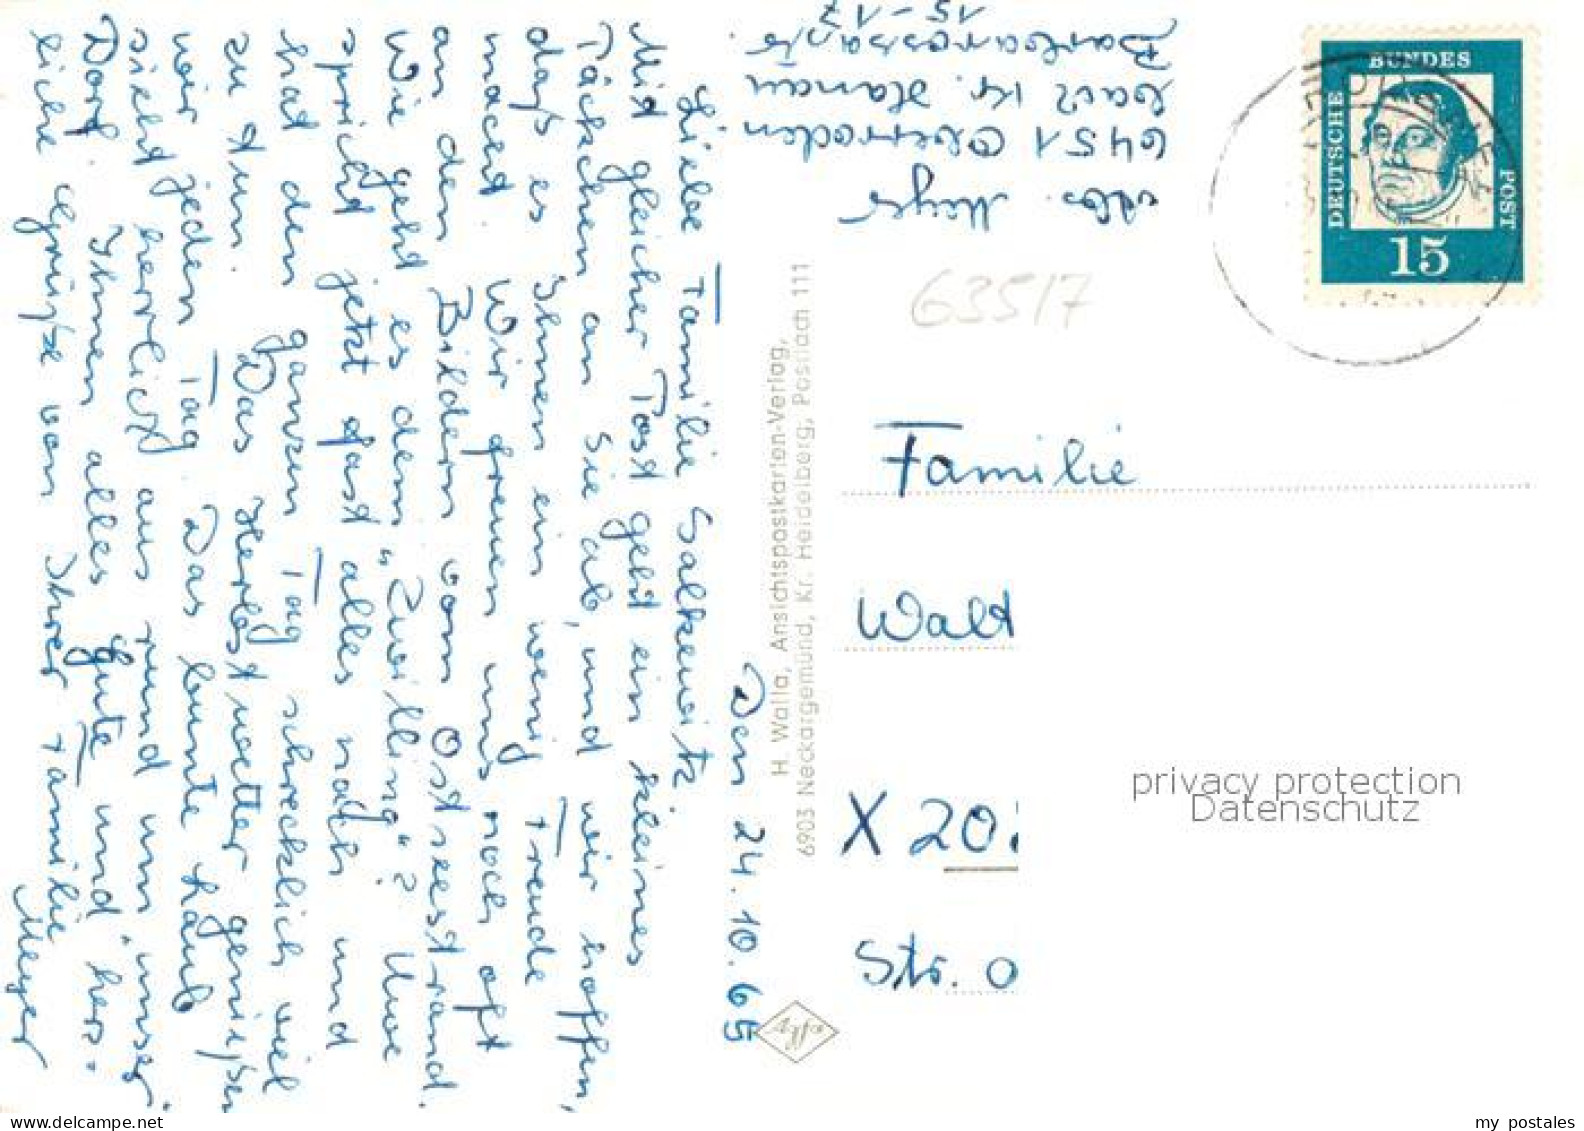 Den 24. 10. 65
Liebe Familie Salkewitz
Mit gleicher Post geht ein kleines
Päckchen an Sie ab, und wir hoffen,
daß es Ihnen ein wenig Freude
macht. Wir freuen uns noch oft
an den Bildern vom Ostseestrand.
Wie geht es dem „Zwilling"? Uwe
spricht jetzt fast alles nach und
hat den ganzen Tag schrecklich viel
zu tun. Das Herbstwetter genießen
wir jeden Tag. Das bunte Laub
sieht herrlich aus rund um „unser"
Dorf. Ihnen alles Gute und herz-
liche Grüße von Ihrer Familie
Meyer
Abs. Meyer
6451 Oberroden
Kr. Hanau
Barbarossastr.
15-17
H. Walla, Ansichtspostkarten-Verlag,
6903 Neckargemünd, Kr. Heidelberg, Postfach 111
63517
DEUTSCHE
BUNDES
POST
15
Familie
Walt
X 20
Str.
privacy protection
Datenschutz
www.delcampe.net
my_postales